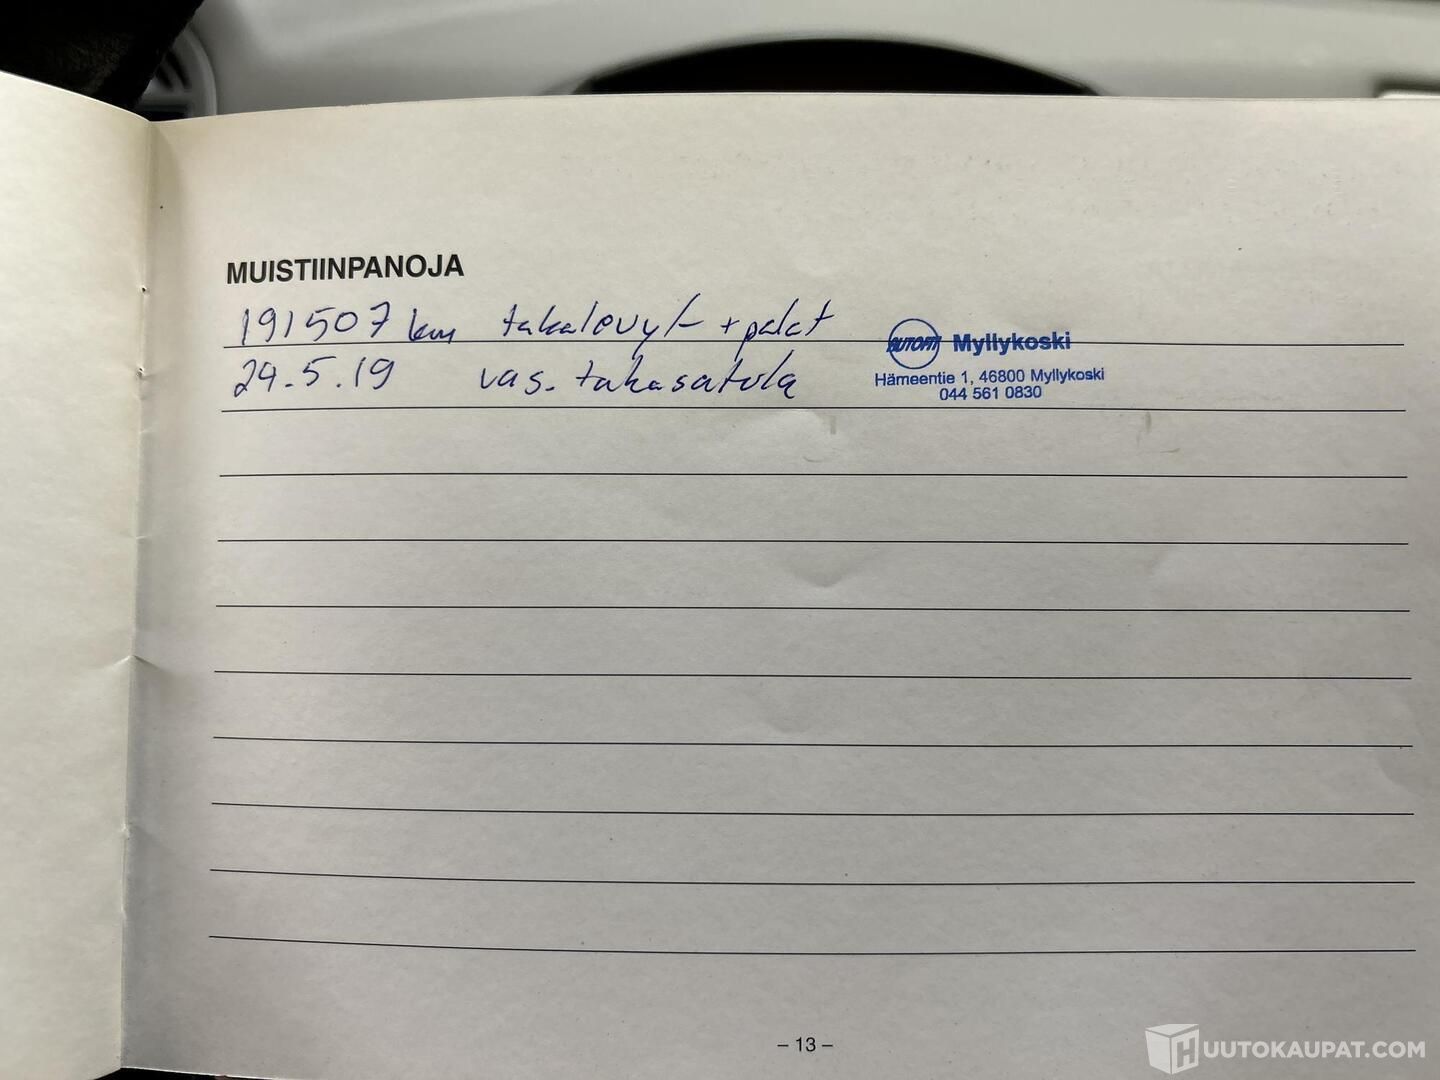 MUISTIINPANOJA
191507 km takalevyt + palat
24.5.19 vas. takasatula
AUTOFIT Myllykoski
Hämeentie 1, 46800 Myllykoski
044 561 0830
– 13 –
HUUTOKAUPAT.COM